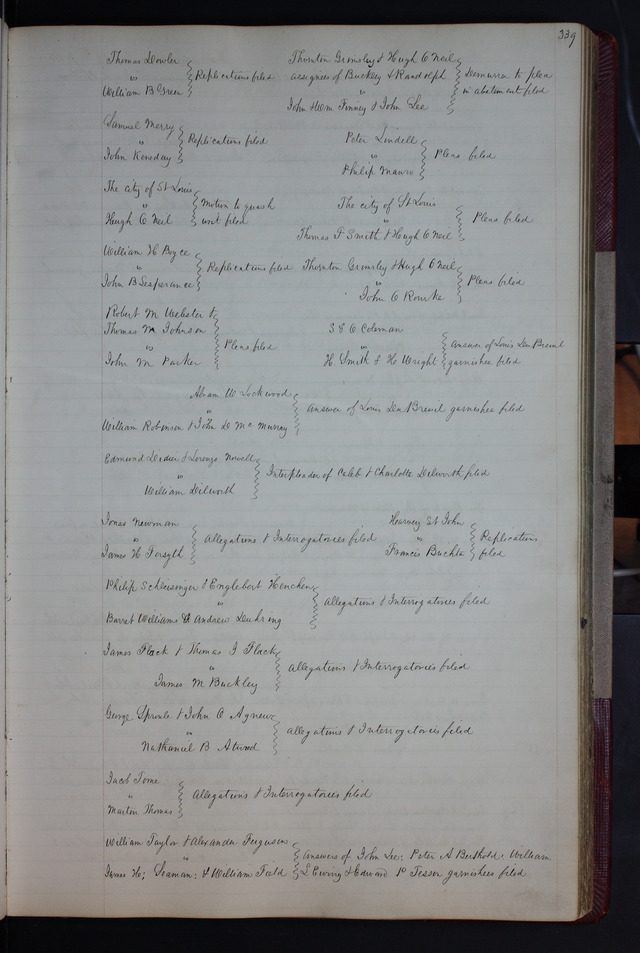 339
Thomas Dowler
vs
William B Green
Replications filed
Thornton Grimsley & Hugh O Neil
assignees of Buckley & Randolph
vs
John Finney & John Lee
Demurrer to plea
in abatement filed
Samuel Merry
vs
John
Replications filed
Peter Lindell
vs
Philip Manro
Pleas filed
The city of St Louis
vs
Hugh O Neil
Motion to quash
writ filed
The city of St Louis
vs
Thomas F Smith & Hugh O Neil
Pleas filed
William H Boyce
vs
John B Lesperance
Replications filed
Thornton Grimsley & Hugh O Neil
vs
John O Rourke
Pleas filed
Robert M Webster &
Thomas M Johnson
vs
John M Parker
Pleas filed
S & C Coleman
vs
H. Smith & H. Wright
Answer of Louis Du Breuil
garnishee filed
Abram W Lockwood
vs
William Robinson & John D McMurray
Answer of Louis Du Breuil garnishee filed
Edmund Didier & Lorenzo Nowell
vs
William Dilworth
Interpleader of Caleb & Charlotte Dilworth filed
Jonas Newman
vs
James H Forsyth
Allegations & Interrogatories filed
Harvey St John
vs
Francis
Replications
filed
Philip Schleisinger & Englebert Henchen
vs
Barret Williams & Andrew Deuhring
Allegations & Interrogatories filed
James Flack & Thomas J Flack
vs
James M Buckley
Allegations & Interrogatories filed
George Sproule & John C Agnew
vs
Nathaniel B Atwood
Allegations & Interrogatories filed
Jacob Tome
vs
Marton Thomas
Allegations & Interrogatories filed
William Taylor & Alexander Ferguson
vs
James H; Seaman: & William Field
Answers of John Lee: Peter A Berthold: William
L Ewing & Edward P Tesson garnishees filed